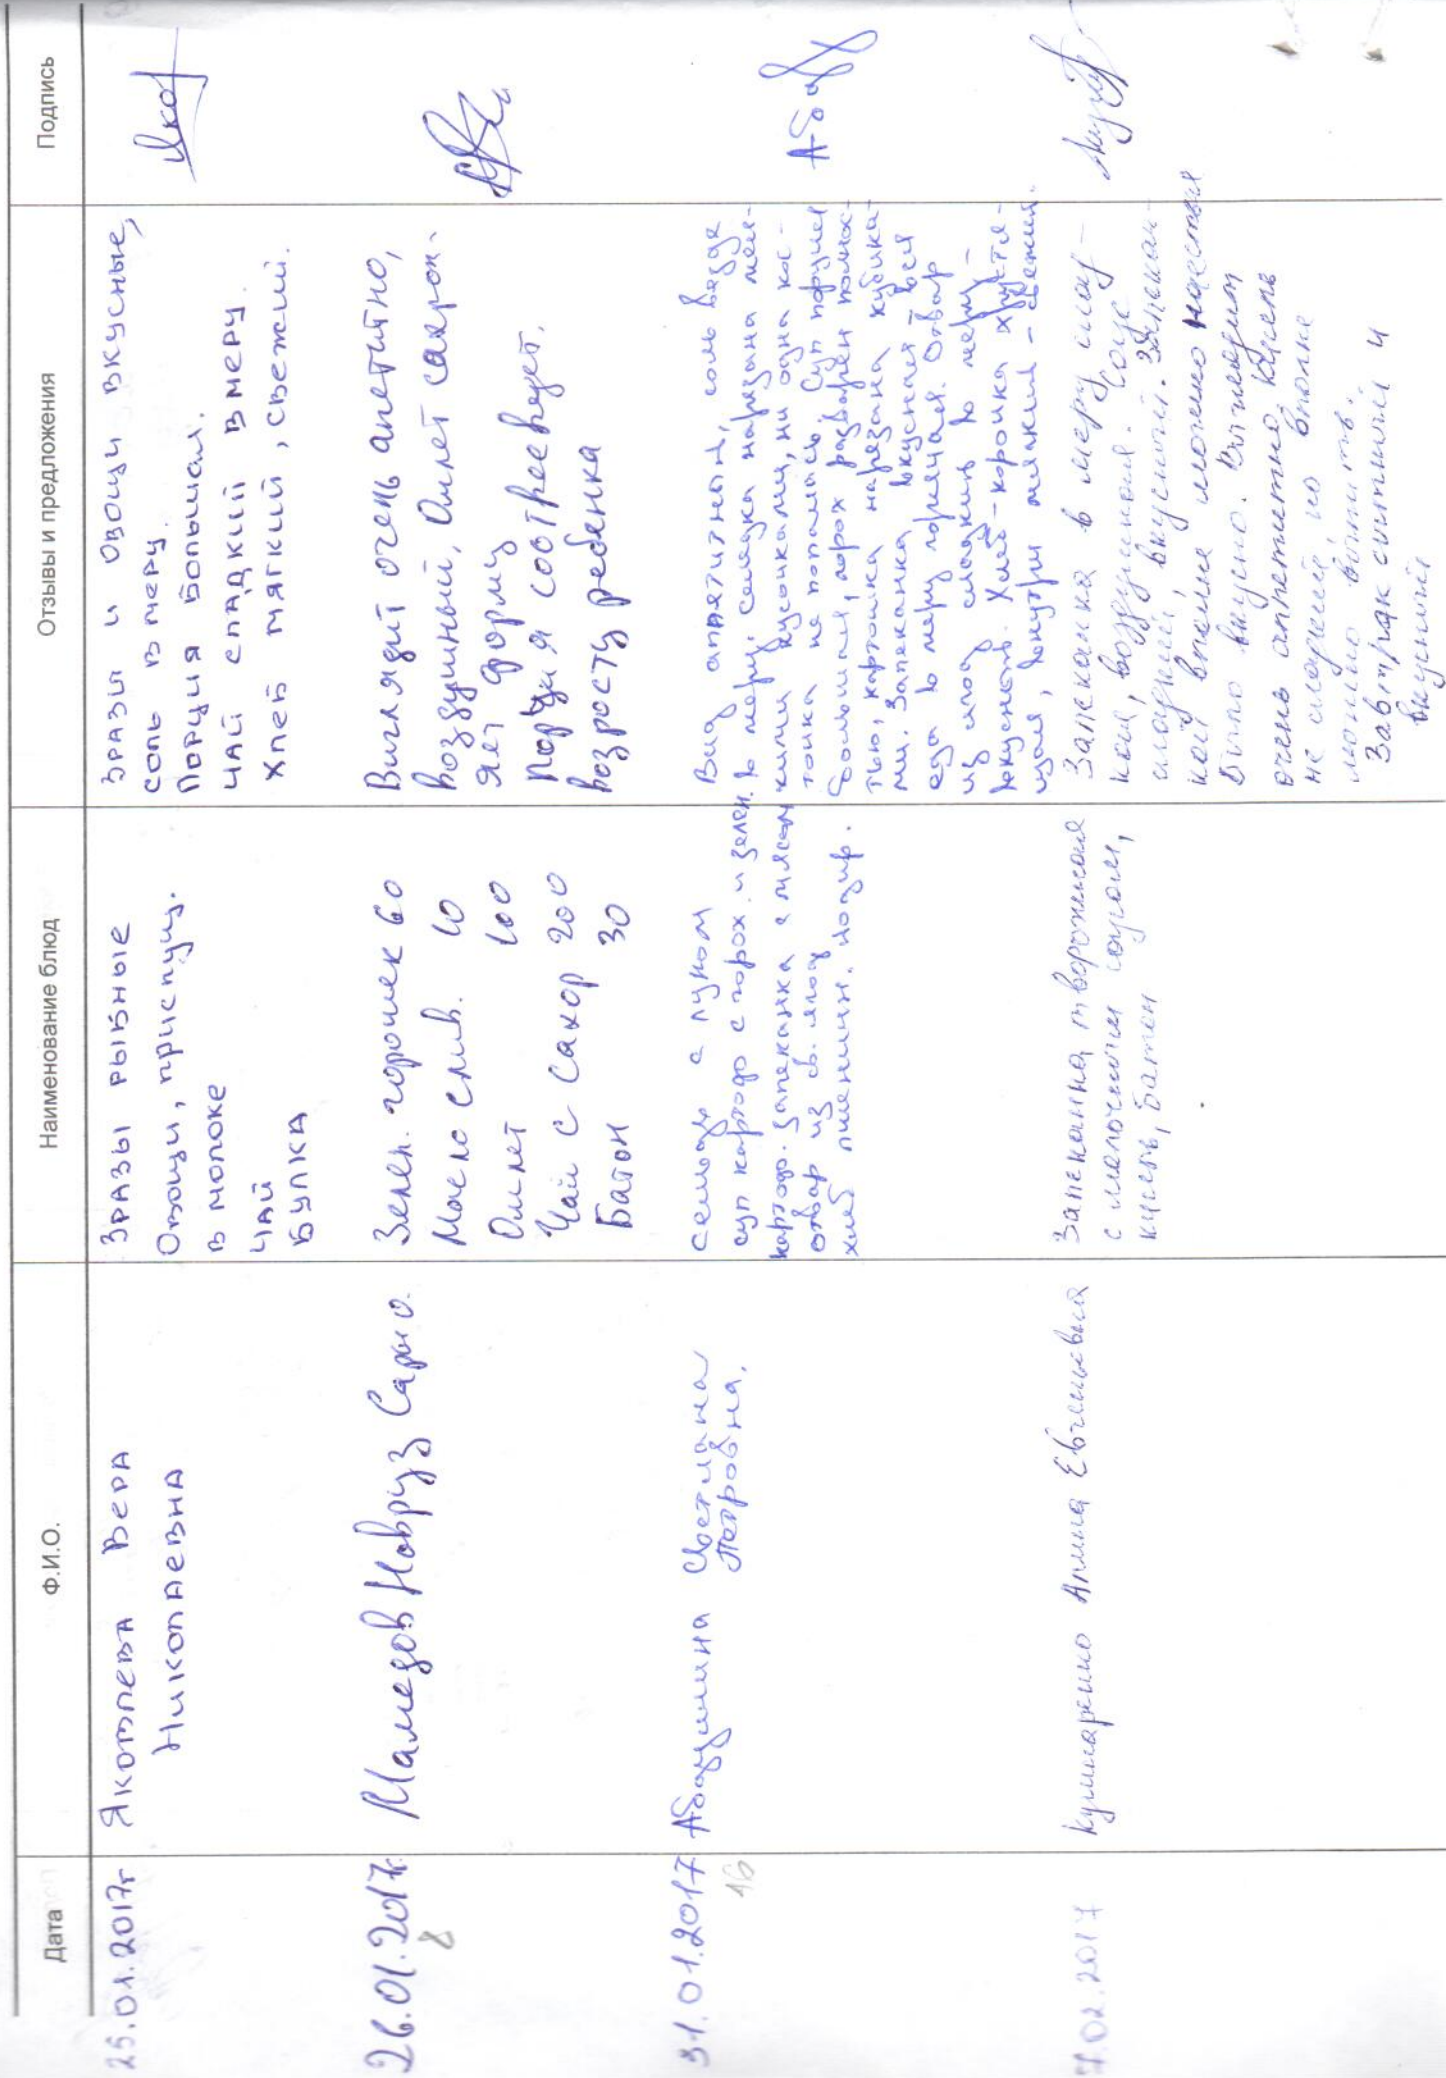 Дата Ф.И.О. Наименование блюд Отзывы и предложения Подпись
25.01.2017г
Яковлева Вера
Николаевна
Зразы рыбные
Овощи, припущ.
в молоке
Чай
Булка
Зразы и овощи вкусные,
соль в меру.
Порция большая.
Чай сладкий в меру
Хлеб мягкий, свежий.
26.01.2017г.
8
Мамедов Новруз
Зелен. горошек 60
Масло слив. 10
Омлет 100
Чай с сахор 200
Батон 30
Виглядит очень апетитно,
воздушный, Омлет сохрон.
яет форму
Порция соответствует.
возросту ребенка
31.01.2017
16
Светлана
Петровна.
сельдь с луком
суп картофо с горох. и зелен.
картоф. запеканка с мясом
отвар из св. ягод
хлеб пшеничн. йодир.
Вид аппетитный, соль везде
в меру, селедка нарезана мел-
кими кусочками, ни одна кос-
точка не попалась. Суп порция
большая, горох разварен полнос-
тью, картошка нарезана кубика-
ми. Запеканка вкусная - вся
еда в меру горячая. Отвар
из ягод сладкий в меру
вкусный. Хлеб - корочка хрустя-
щая, внутри мягкий - свежий.
7.02.2017
Кушнаренко Алина Евгеньевна
Запеканка творожная
с молочным соусом,
кисель, батон
Запеканка в меру слад-
кая, воздушная. Соус
сладкий, вкусный. Запекан-
кой вполне можно наесться
Было вкусно. Выглядит
очень аппетитно. Кисель
не сладкий, но вполне
можно выпить.
Завтрак сытный и
вкусный